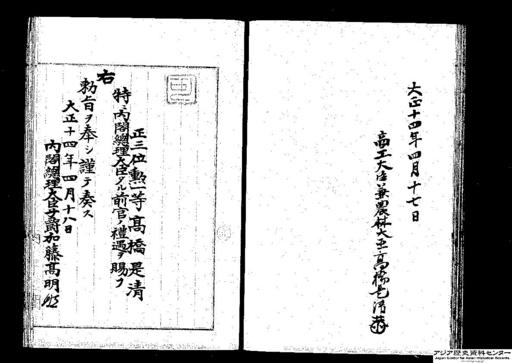 大正十四年四月十七日
商工大臣兼農林大臣高橋是清
正三位勲一等高橋是清
特ニ内閣總理大臣タル前官ノ禮遇ヲ賜フ
右
勅旨ヲ奉シ謹テ奏ス
大正十四年四月十八日
内閣總理大臣子爵加藤高明
アジア歴史資料センター
Japan Center for Asian Historical Records